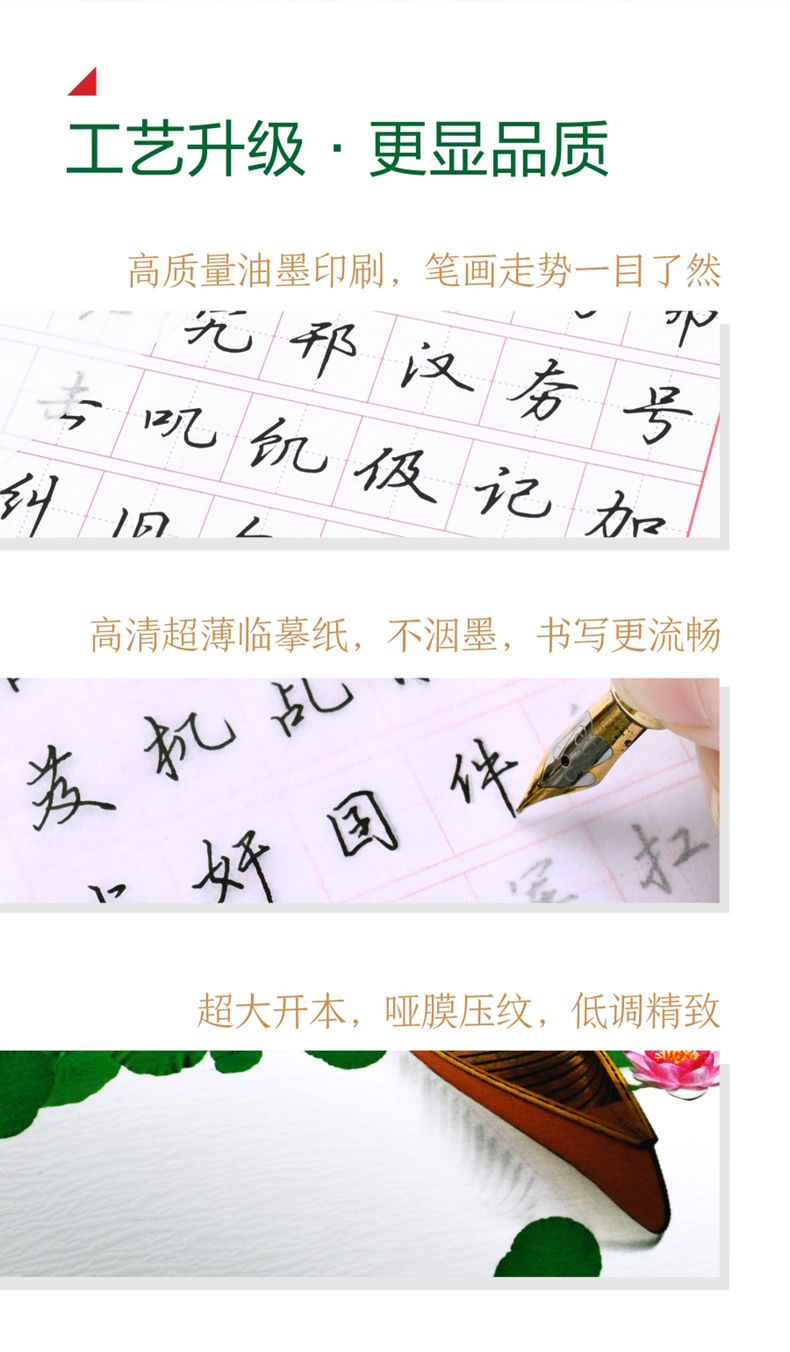 工艺升级·更显品质
高质量油墨印刷，笔画走势一目了然
究邦汉夯号
叽饥伋记加
纠
高清超薄临摹纸，不洇墨，书写更流畅
机乱
奸国件
扛
超大开本，哑膜压纹，低调精致